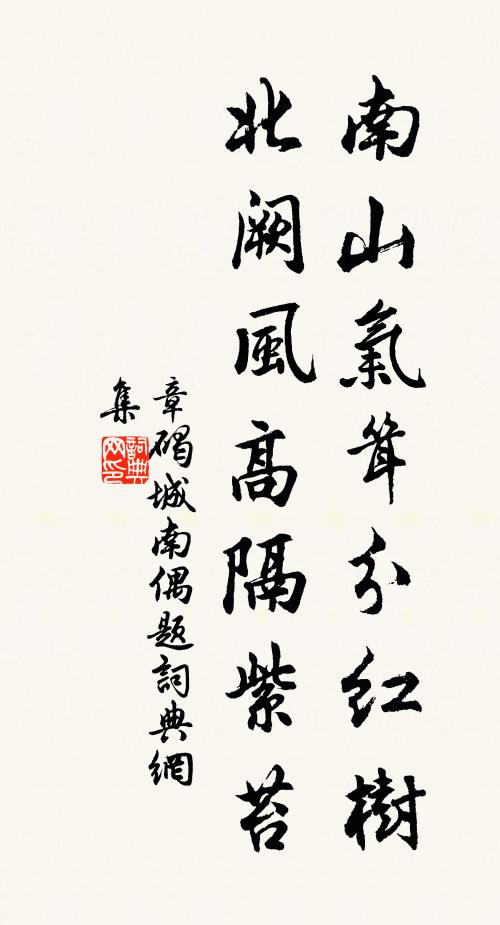 南山氣耸分紅樹
北闕風高隔紫苔
章碣城南偶題詞典網
集
詞典
网印